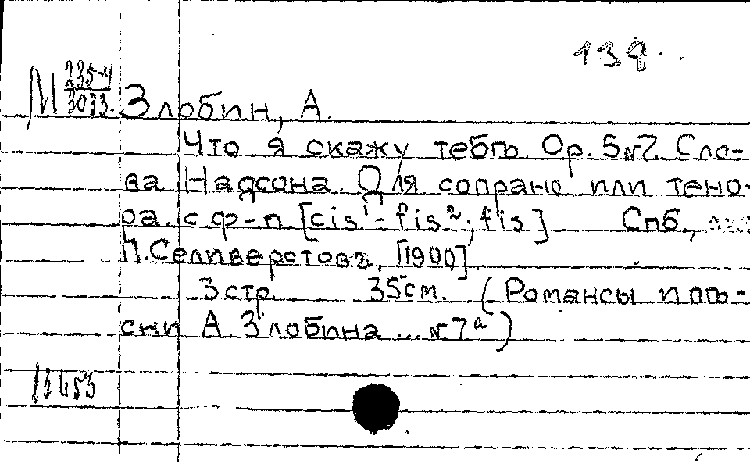 138.
М 235-4
3033
Злобин, А.
Что я скажу тебѣ. Ор. 5 №7. Сло-
ва Надсона. Для сопрано или тено-
ра с ф-п. [cis¹-fis²; fis] Спб.,
П. Селиверстовъ, [1900]
3 стр. 35 см. (Романсы и пѣ-
сни А. Злобина ... №7а)
13453